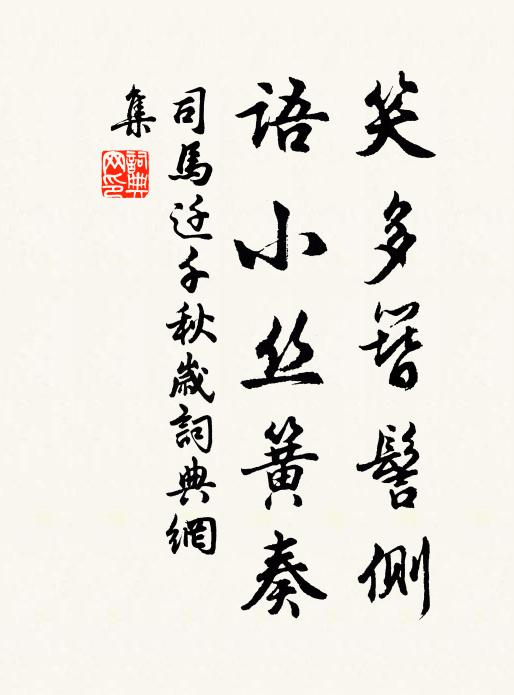 笑多簪髻側
語小丝簧奏
司馬迁千秋歲詞典網
集
詞典
网印